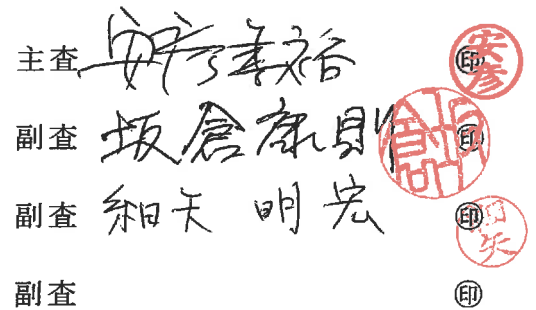 主査 安彦善裕 ㊞ 安彦
副査 坂倉康則 ㊞ 坂倉
副査 細矢 明宏 ㊞ 細矢
副査 ㊞